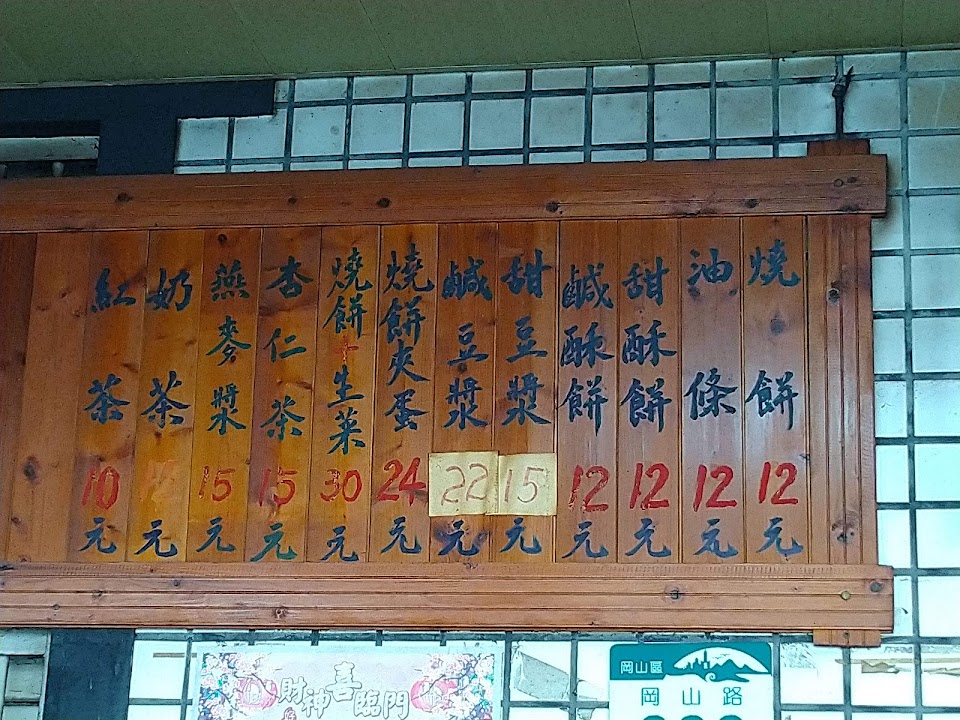 燒餅 12元
油條 12元
甜酥餅 12元
鹹酥餅 12元
甜豆漿 15元
鹹豆漿 22元
燒餅夾蛋 24元
燒餅+生菜 30元
杏仁茶 15元
燕麥漿 15元
奶茶 元
紅茶 10元
財神喜臨門
岡山區
岡山路